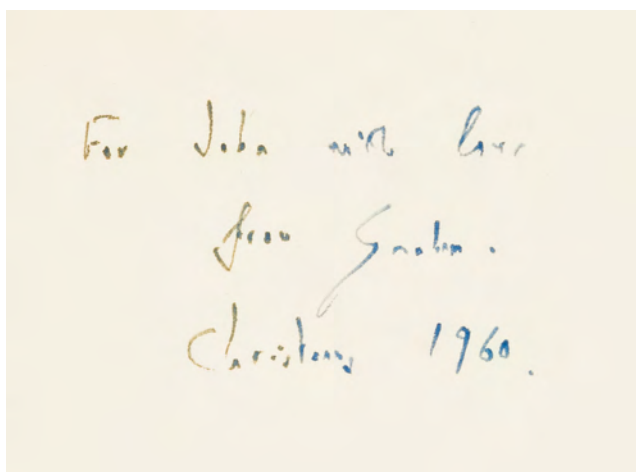 For John with love
from Graham.
Christmas 1960.